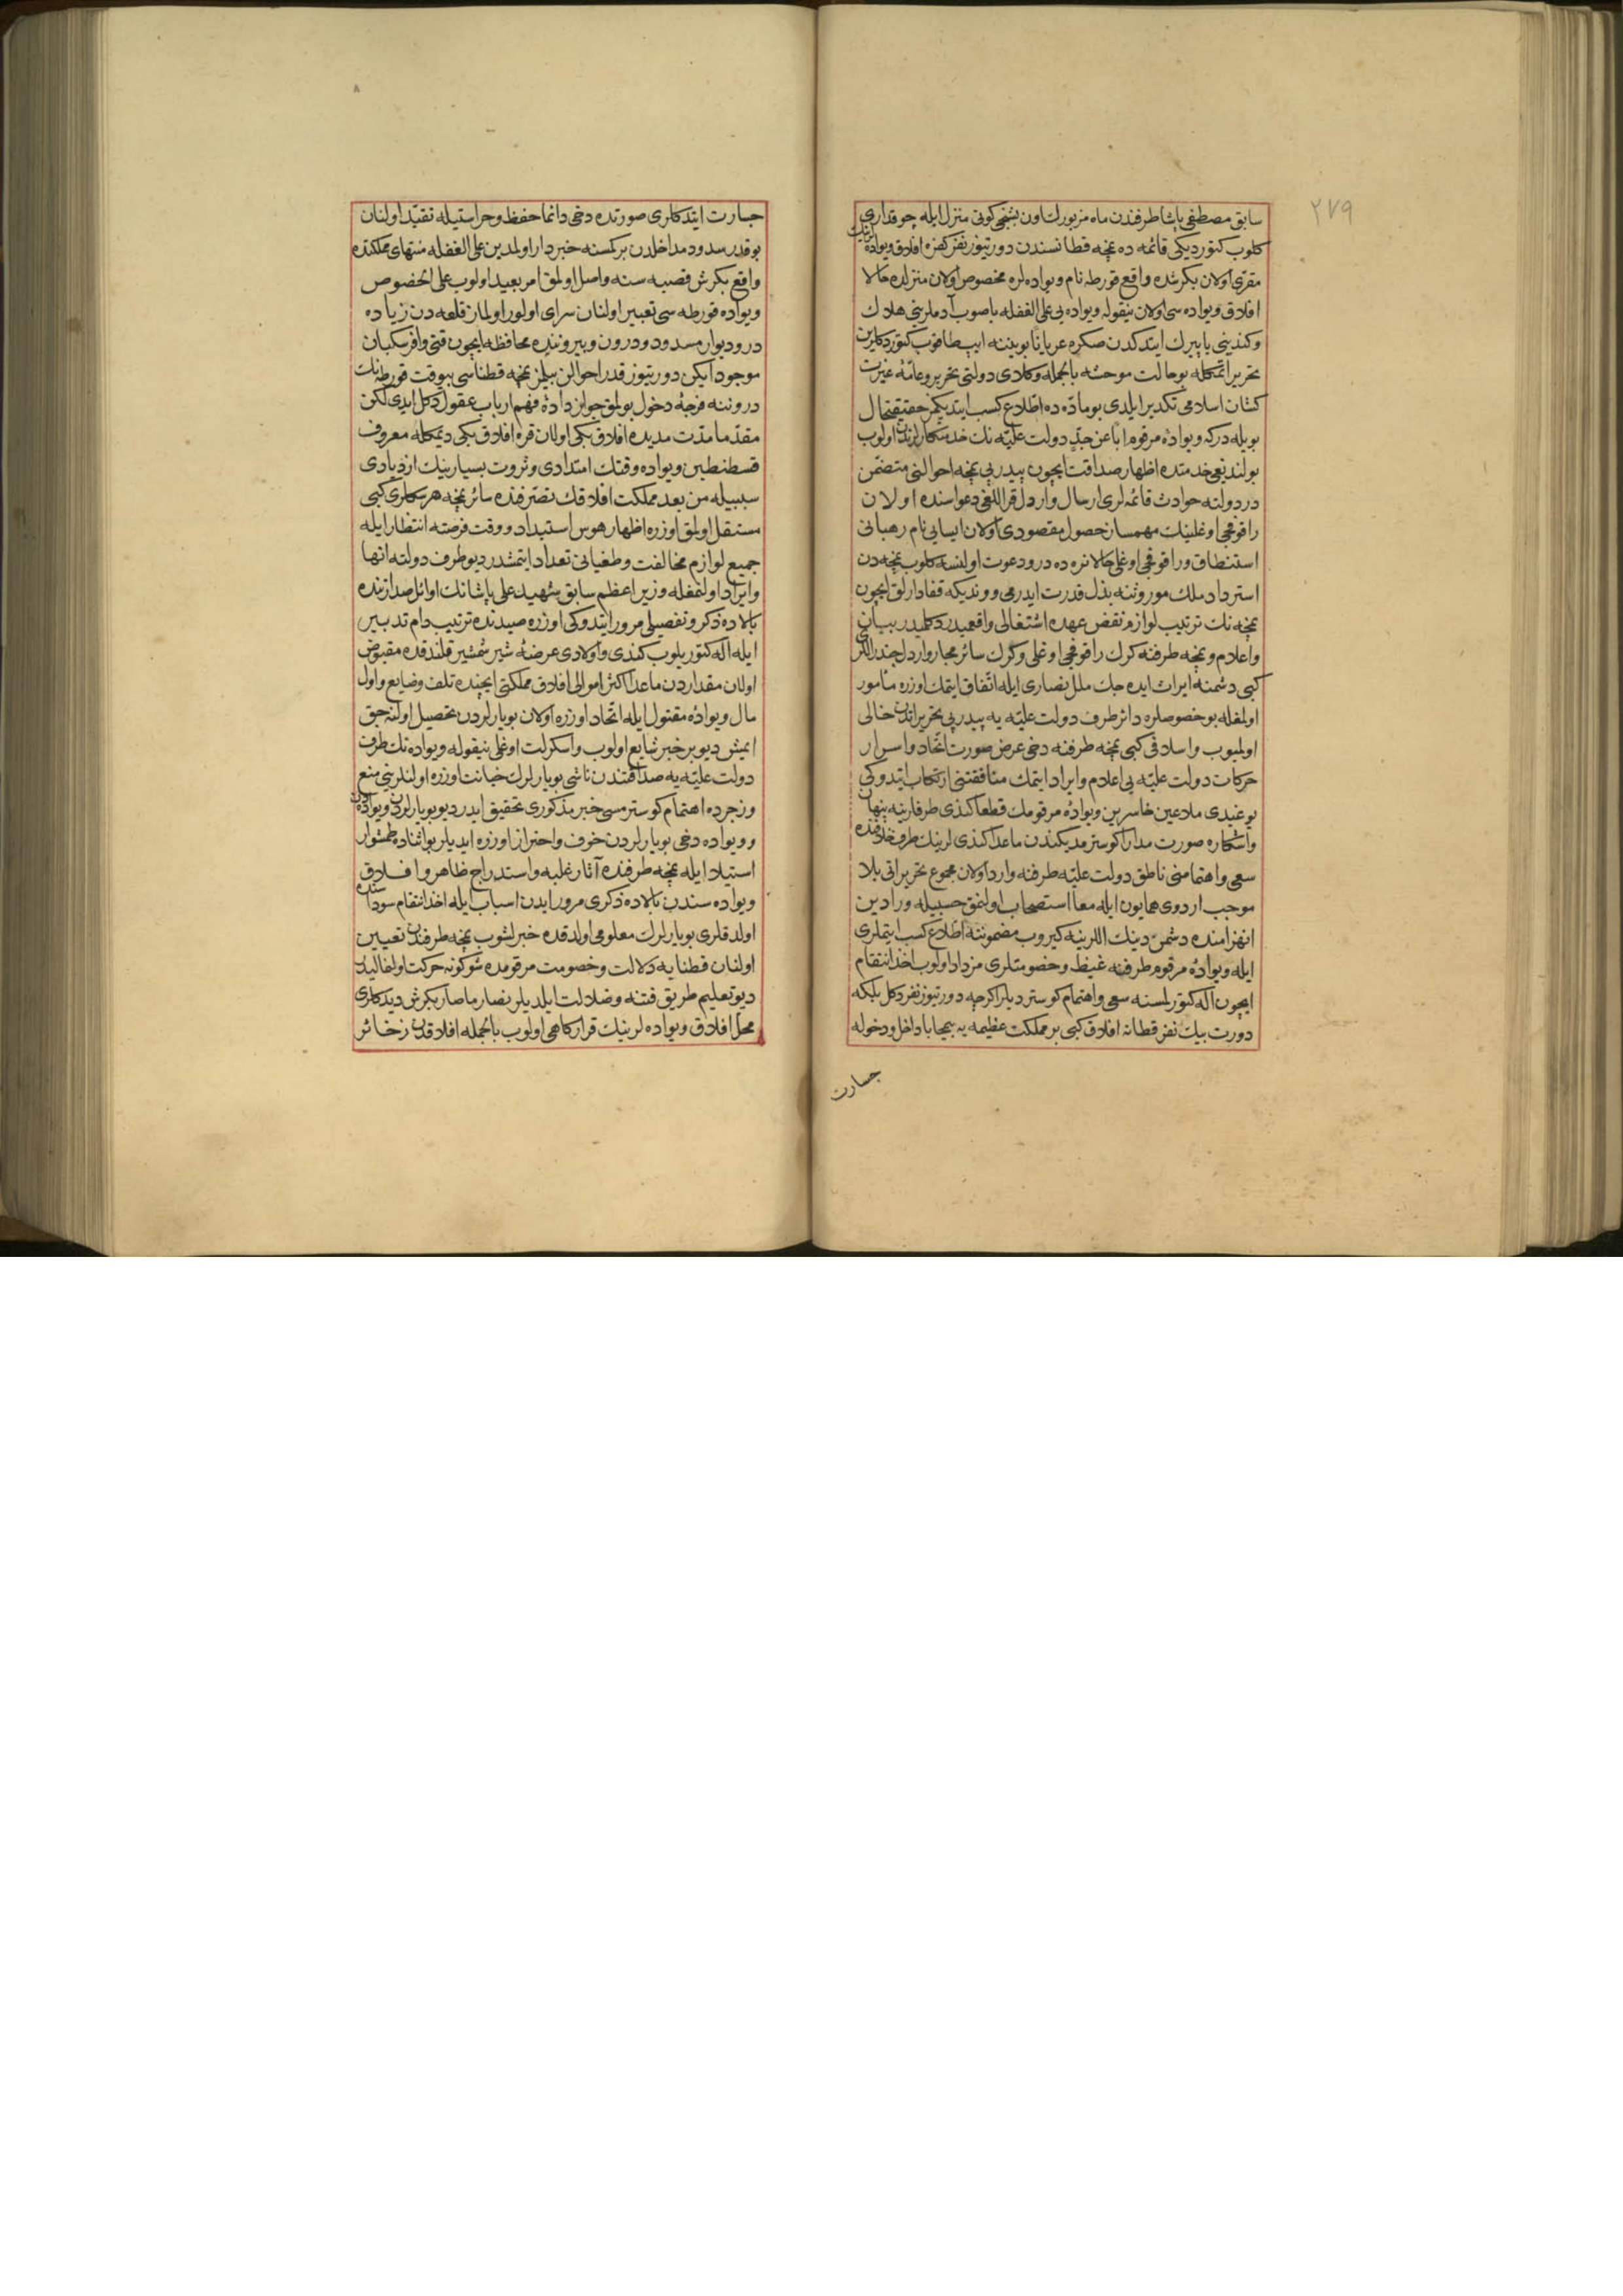 ٢٧٩
سابق مصطفى پاشا طرفندن ماه مزبورك اون بشنجى كونى منزل ايله چوقدارى
كلوب كتورديكى قائمه ده نمچه قطانه سندن دورتيوز نفر كفره افلاق ويواده لرينك
مقرى اولان بكرشده واقع قورطه نام ويواده لره مخصوص اولان منزلده حالا
افلاق ويواده سى اولان نيقوله ويواده يى على الغفله باصوب آدملرينى هلاك
وكندينى پاييرك ايتدكدن صكره عريانا بويننه ايپ طاقوب كتوردكلرين
تحرير اتمكله بو حالت موحشه بالجمله وكلاى دولتى تحرير وعامهٔ غيرت
كشان اسلامى تكدير ايلدى بو مادّه ده اطلاع كسب ايتديكمز حقيقتحال
بويله دركه ويوادهٔ مرقوم اباً عن جدٍّ دولت عليه نك خدمتكارلرندن اولوب
بولنديغى خدمتده اظهار صداقت ايچون پيدرپى نمچه احوالنى متضمن
دردولته حوادث قائمه لرى ارسال واردل قراللغى دعواسنده اولان
راقوفجى اوغلينك مهمساز حصول مقصودى اولان ايسايى نام رهبانى
استنطاق وراقوفجى اوغلى حالا نره ده در ودعوت اولنسه كلوب نمچه دن
استرداد ملك موروثنه بذل قدرت ايدرمى ووندیکه قفادارلق ايچون
نمچه نك ترتيب لوازم نقض عهده اشتغالى واقعيدر دكلميدر بيان
واعلام ونمچه طرفنه كرك راقوفجى اوغلى وكرك سائر مجار واردل جندراللرى
كبى دشمنه ايراث ايده جك ملل نصارى ايله اتفاق ايتمك اوزره مأمور
اولمغله بو خصوصلره دائر طرف دولت عليه يه پيدرپى تحريراتدن خالى
اولميوب واسلافى كبى نمچه طرفنه دخى عرض صورت اتحاد واسرار
حركات دولت عليه يى اعلام وايراد ايتمك منافقتنى ارتكاب ايتدوكى
يوغيدى ملاعين خاسرين ويوادهٔ مرقومك قطعا كندى طرفلرينه پنهان
واشكاره صورت مدارا كوسترمديكندن ماعدا كندى لرينك طرف خلافنده
سعى واهتمامنى ناطق دولت عليه طرفنه وارد اولان مجموع تحريراتى بلا
موجب اردوى همايون ايله معاً استصحاب اولنمق حسبيله ورادين
انهزامنده دشمن دينك اللرينه كيروب مضموننه اطلاع كسب ايتملرى
ايله ويوادهٔ مرقوم طرفنه غيظ وخصومتلرى مزداد اولوب اخذ انتقام
ايچون اله كتورلمسنه سعى واهتمام كوسترديلر اكرچه دورتيوز نفر دكل بلكه
دورت بيك نفر قطانه افلاق كبى بر مملكت عظيمه يه بيحابا داخل ودخوله
جسارت
جسارت ايتدكلرى صورتده دخى دائما حفظ وحراستيله تقيد اولنان
بوقدر سدود مداخلدن بر كمسنه خبردار اولمدين على الغفله منتهاى مملكتده
واقع بكرش قصبه سنه واصل اولمق امر بعيد اولوب على الخصوص
ويواده قورطه سى تعبير اولنان سراى اولور اولماز قلعه دن زياده
در وديوار مسدود ودرون وبيروننده محافظه ايچون قتى وافر سكبان
موجود ايكن دورتيوز قدر احوالن بيلمز نمچه قطناسى بيوقت قورطه نك
دروننه فرجهٔ دخول بولمق جواز دادهٔ فهم ارباب عقول دكل ايدى لكن
مقدما مدت مديده افلاق بكى اولان قره افلاق بكى ديمكله معروف
قسطنطين ويواده وقتك امتدادى وثروت بسيارينك ازديادى
سببيله من بعد مملكت افلاقك تصرفنده سائر نمچه هرسكلرى كبى
مستقل اولمق اوزره اظهار هوس استبداد ووقت فرصته انتظار ايله
جميع لوازم مخالفت وطغيانى تعداد ايتمشدر ديو طرف دولته انها
وايراد اولنمغله وزير اعظم سابق شهيد على پاشانك اوائل صدارتنده
بالاده ذكر وتفصيلى مرور ايتدوكى اوزره صيدنده ترتيب دام تدبير
ايله اله كتوريلوب كندى واولادى عرضهٔ شير شمشير قلندقده مقبوض
اولان مقداردن ماعدا اكثر اموالى افلاق مملكتى ايچنده تلف وضايع واول
مال ويوادهٔ مقتول ايله اتحاد اوزره اولان بويارلردن تحصيل اولنه جق
ايمش ديو بر خبر شايع اولوب واسكرلت اوغلى نيقوله ويواده نك طرف
دولت عليه يه صداقتندن ناشى بويارلرك خيانت اوزره اولنلرينى منع
وزجرده اهتمام كوسترمسى خبر مذكورى تحقيق ايدر ديو بويارلردن ويواده دن
وويواده دخى بويارلردن خوف واحتراز اوزره ايديلر بو اثناده طمشوار
استيلاء ايله نمچه طرفنده آثار غلبه واستدراج ظاهر وافلاق
ويواده سندن بالاده ذكرى مرور ايدن اسباب ايله اخذ انتقام سوداسنده
اولدقلرى بويارلرك معلومى اولدقده خبرلشوب نمچه طرفندن تعيين
اولنان قطنايه دلالت وخصومت مرقومده شو كونه حركت اولنماليدر
ديو تعليم طريق فتنه وضلالت ايلديلر نصار ماصار بكرش ديدكلرى
محل افلاق ويواده لرينك قراركاهى اولوب بالجمله افلاقدن زخائر